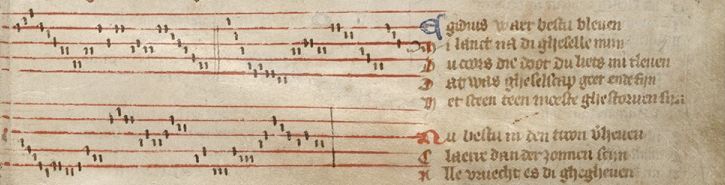 Egidius waer bestu bleven
Mi lanct na di gheselle mijn
Du cors die doot du liets mi tleven
Dat was gheselscap goet ende fijn
Het sceen teen moeste ghestorven sijn
Nu bestu in den troon verheven
Claerre dan der zonnen scijn
Alle vruecht es di ghegheven